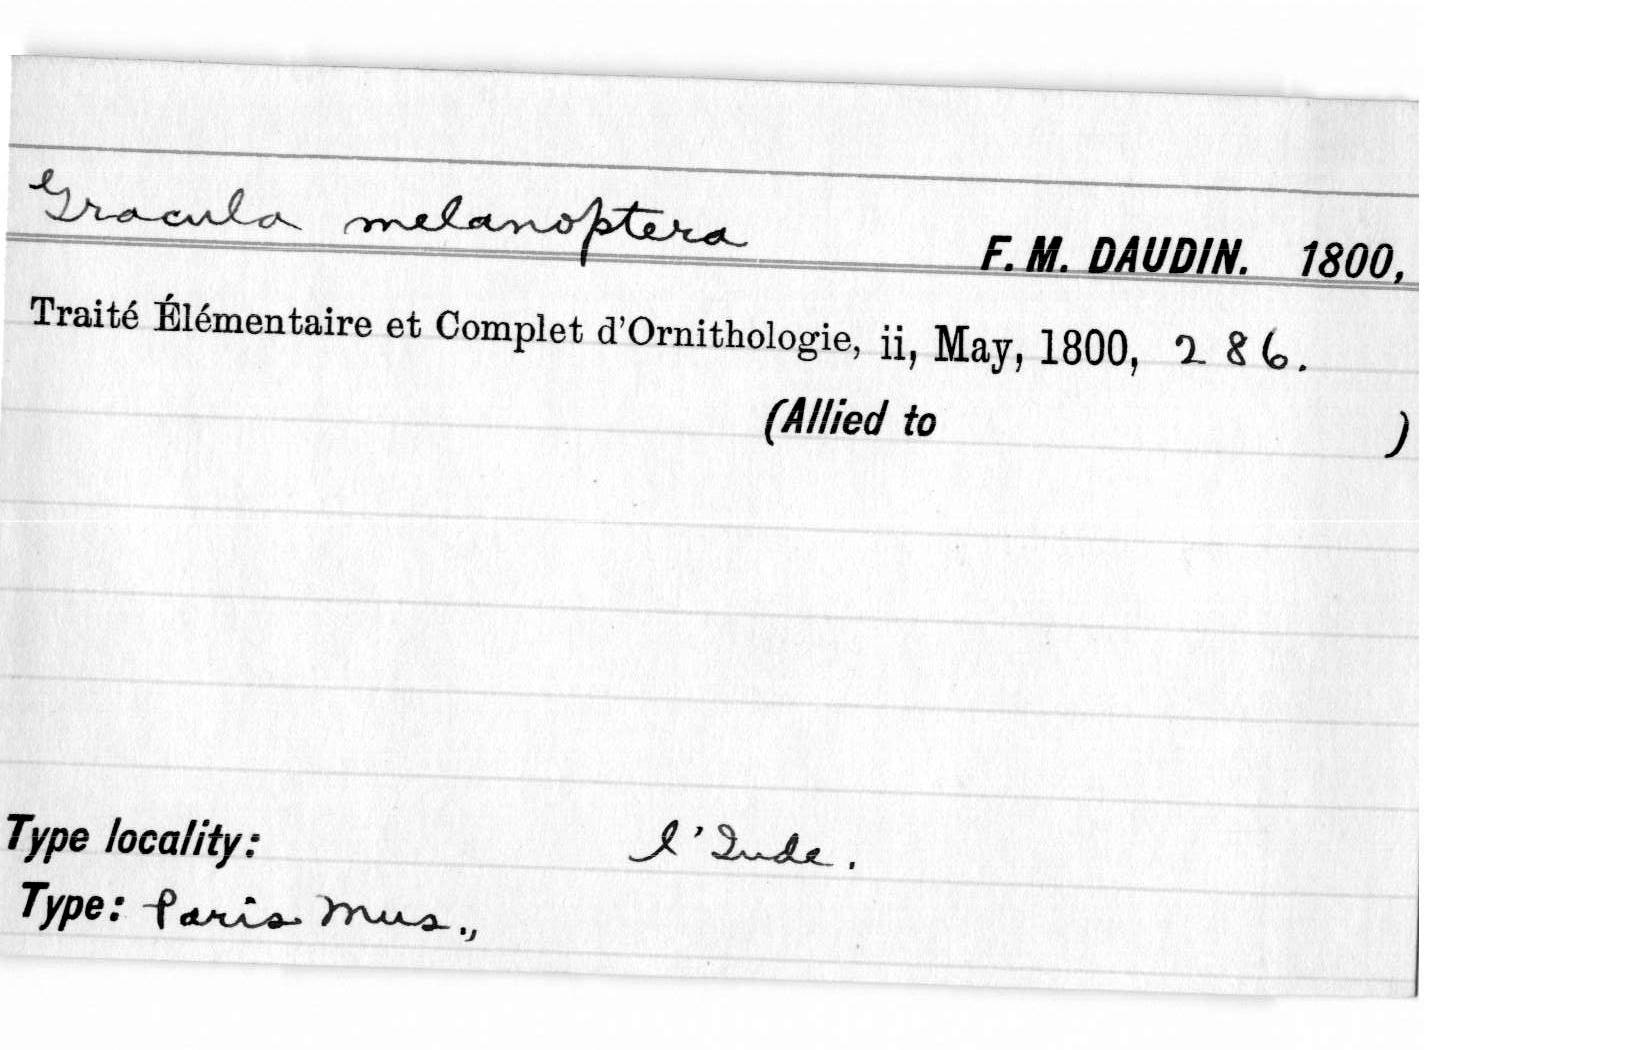 Gracula melanoptera F. M. DAUDIN. 1800,
Traité Élémentaire et Complet d'Ornithologie, ii, May, 1800, 286.
(Allied to )
Type locality: l'Inde.
Type: Paris Mus.,